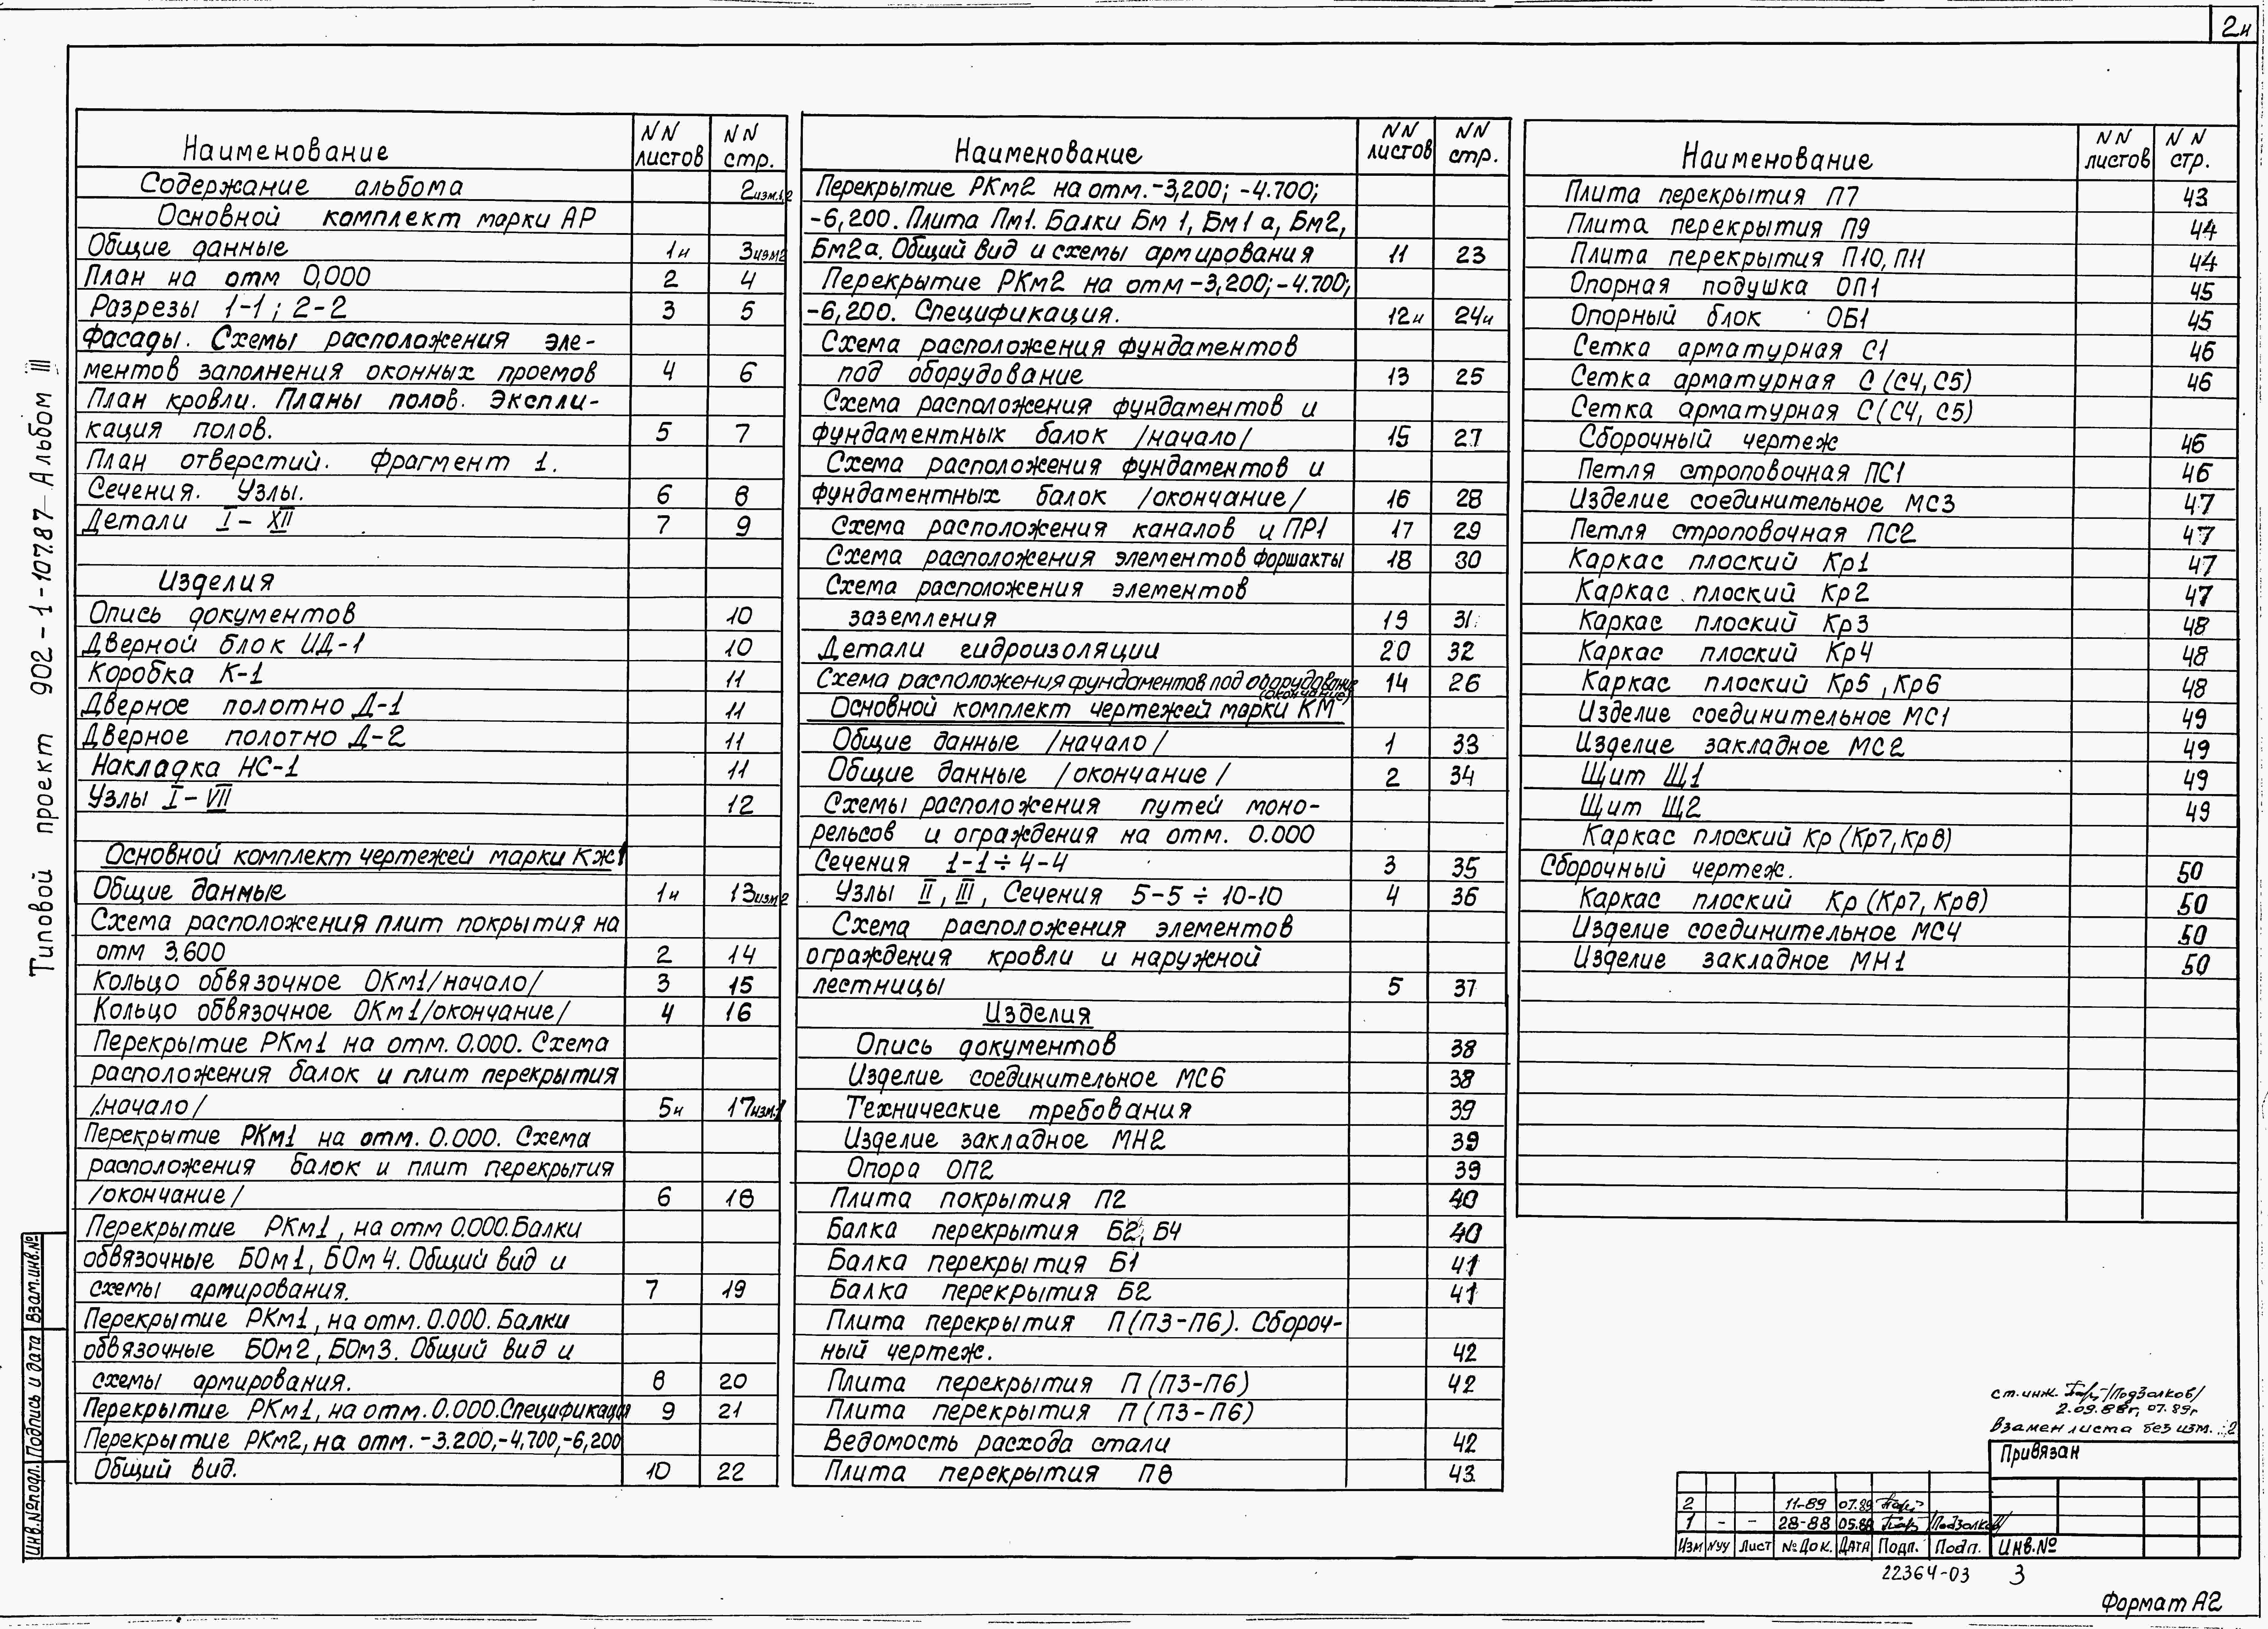 2и
Типовой проект 902-1-107.87 Альбом III
Наименование NN листов NN стр.
Содержание альбома 2изм.1,2
Основной комплект марки АР
Общие данные 1и 3изм2
План на отм 0,000 2 4
Разрезы 1-1; 2-2 3 5
Фасады. Схемы расположения эле-
ментов заполнения оконных проемов 4 6
План кровли. Планы полов. Экспли-
кация полов. 5 7
План отверстий. Фрагмент 1.
Сечения. Узлы. 6 8
Детали I-XII 7 9
Изделия
Опись документов 10
Дверной блок ИД-1 10
Коробка К-1 11
Дверное полотно Д-1 11
Дверное полотно Д-2 11
Накладка НС-1 11
Узлы I-VII 12
Основной комплект чертежей марки КЖ1
Общие данные 1и 13изм2
Схема расположения плит покрытия на
отм 3,600 2 14
Кольцо обвязочное ОКм1/начало/ 3 15
Кольцо обвязочное ОКм1/окончание/ 4 16
Перекрытие РКм1 на отм. 0.000. Схема
расположения балок и плит перекрытия
/начало/ 5и 17изм.1
Перекрытие РКм1 на отм. 0.000. Схема
расположения балок и плит перекрытия
/окончание/ 6 18
Перекрытие РКм1, на отм 0.000. Балки
обвязочные БОм1, БОм4. Общий вид и
схемы армирования. 7 19
Перекрытие РКм1, на отм. 0.000. Балки
обвязочные БОм2, БОм3. Общий вид и
схемы армирования. 8 20
Перекрытие РКм1, на отм. 0.000. Спецификация 9 21
Перекрытие РКм2, на отм. -3.200,-4,700,-6,200
Общий вид. 10 22
Наименование NN листов NN стр.
Перекрытие РКм2 на отм. -3,200; -4.700;
-6,200. Плита Пм1. Балки Бм1, Бм1а, Бм2,
Бм2а. Общий вид и схемы армирования 11 23
Перекрытие РКм2 на отм -3,200; -4.700;
-6,200. Спецификация. 12и 24и
Схема расположения фундаментов
под оборудование 13 25
Схема расположения фундаментов и
фундаментных балок /начало/ 15 27
Схема расположения фундаментов и
фундаментных балок /окончание/ 16 28
Схема расположения каналов и ПР1 17 29
Схема расположения элементов форшахты 18 30
Схема расположения элементов
заземления 19 31
Детали гидроизоляции 20 32
Схема расположения фундаментов под оборудование (окончание) 14 26
Основной комплект чертежей марки КМ
Общие данные /начало/ 1 33
Общие данные /окончание/ 2 34
Схемы расположения путей моно-
рельсов и ограждения на отм. 0.000
Сечения 1-1÷4-4 3 35
Узлы II, III, Сечения 5-5÷10-10 4 36
Схема расположения элементов
ограждения кровли и наружной
лестницы 5 37
Изделия
Опись документов 38
Изделие соединительное МС6 38
Технические требования 39
Изделие закладное МН2 39
Опора ОП2 39
Плита покрытия П2 40
Балка перекрытия Б2, Б4 40
Балка перекрытия Б1 41
Балка перекрытия Б2 41
Плита перекрытия П(П3-П6). Сбороч-
ный чертеж. 42
Плита перекрытия П(П3-П6) 42
Плита перекрытия П(П3-П6)
Ведомость расхода стали 42
Плита перекрытия П8 43
Наименование NN листов NN стр.
Плита перекрытия П7 43
Плита перекрытия П9 44
Плита перекрытия П10, П11 44
Опорная подушка ОП1 45
Опорный блок ОБ1 45
Сетка арматурная С1 46
Сетка арматурная С(С4, С5) 46
Сетка арматурная С(С4, С5)
Сборочный чертеж 46
Петля строповочная ПС1 46
Изделие соединительное МС3 47
Петля строповочная ПС2 47
Каркас плоский Кр1 47
Каркас плоский Кр2 47
Каркас плоский Кр3 48
Каркас плоский Кр4 48
Каркас плоский Кр5, Кр6 48
Изделие соединительное МС1 49
Изделие закладное МС2 49
Щит Щ1 49
Щит Щ2 49
Каркас плоский Кр(Кр7, Кр8)
Сборочный чертеж. 50
Каркас плоский Кр(Кр7, Кр8) 50
Изделие соединительное МС4 50
Изделие закладное МН1 50
ст.инж. /Подзолков/
2.09.88г, 07.89г
Взамен листа без изм. 2
Привязан
2 11-89 07.89
1 - - 28-88 05.88 /Подзолков/
Изм Nуч Лист № Док. Дата Подп. Подп.
Инв.№
22364-03 3
Формат А2
Инв.№подл. Подпись и дата Взам.инв.№